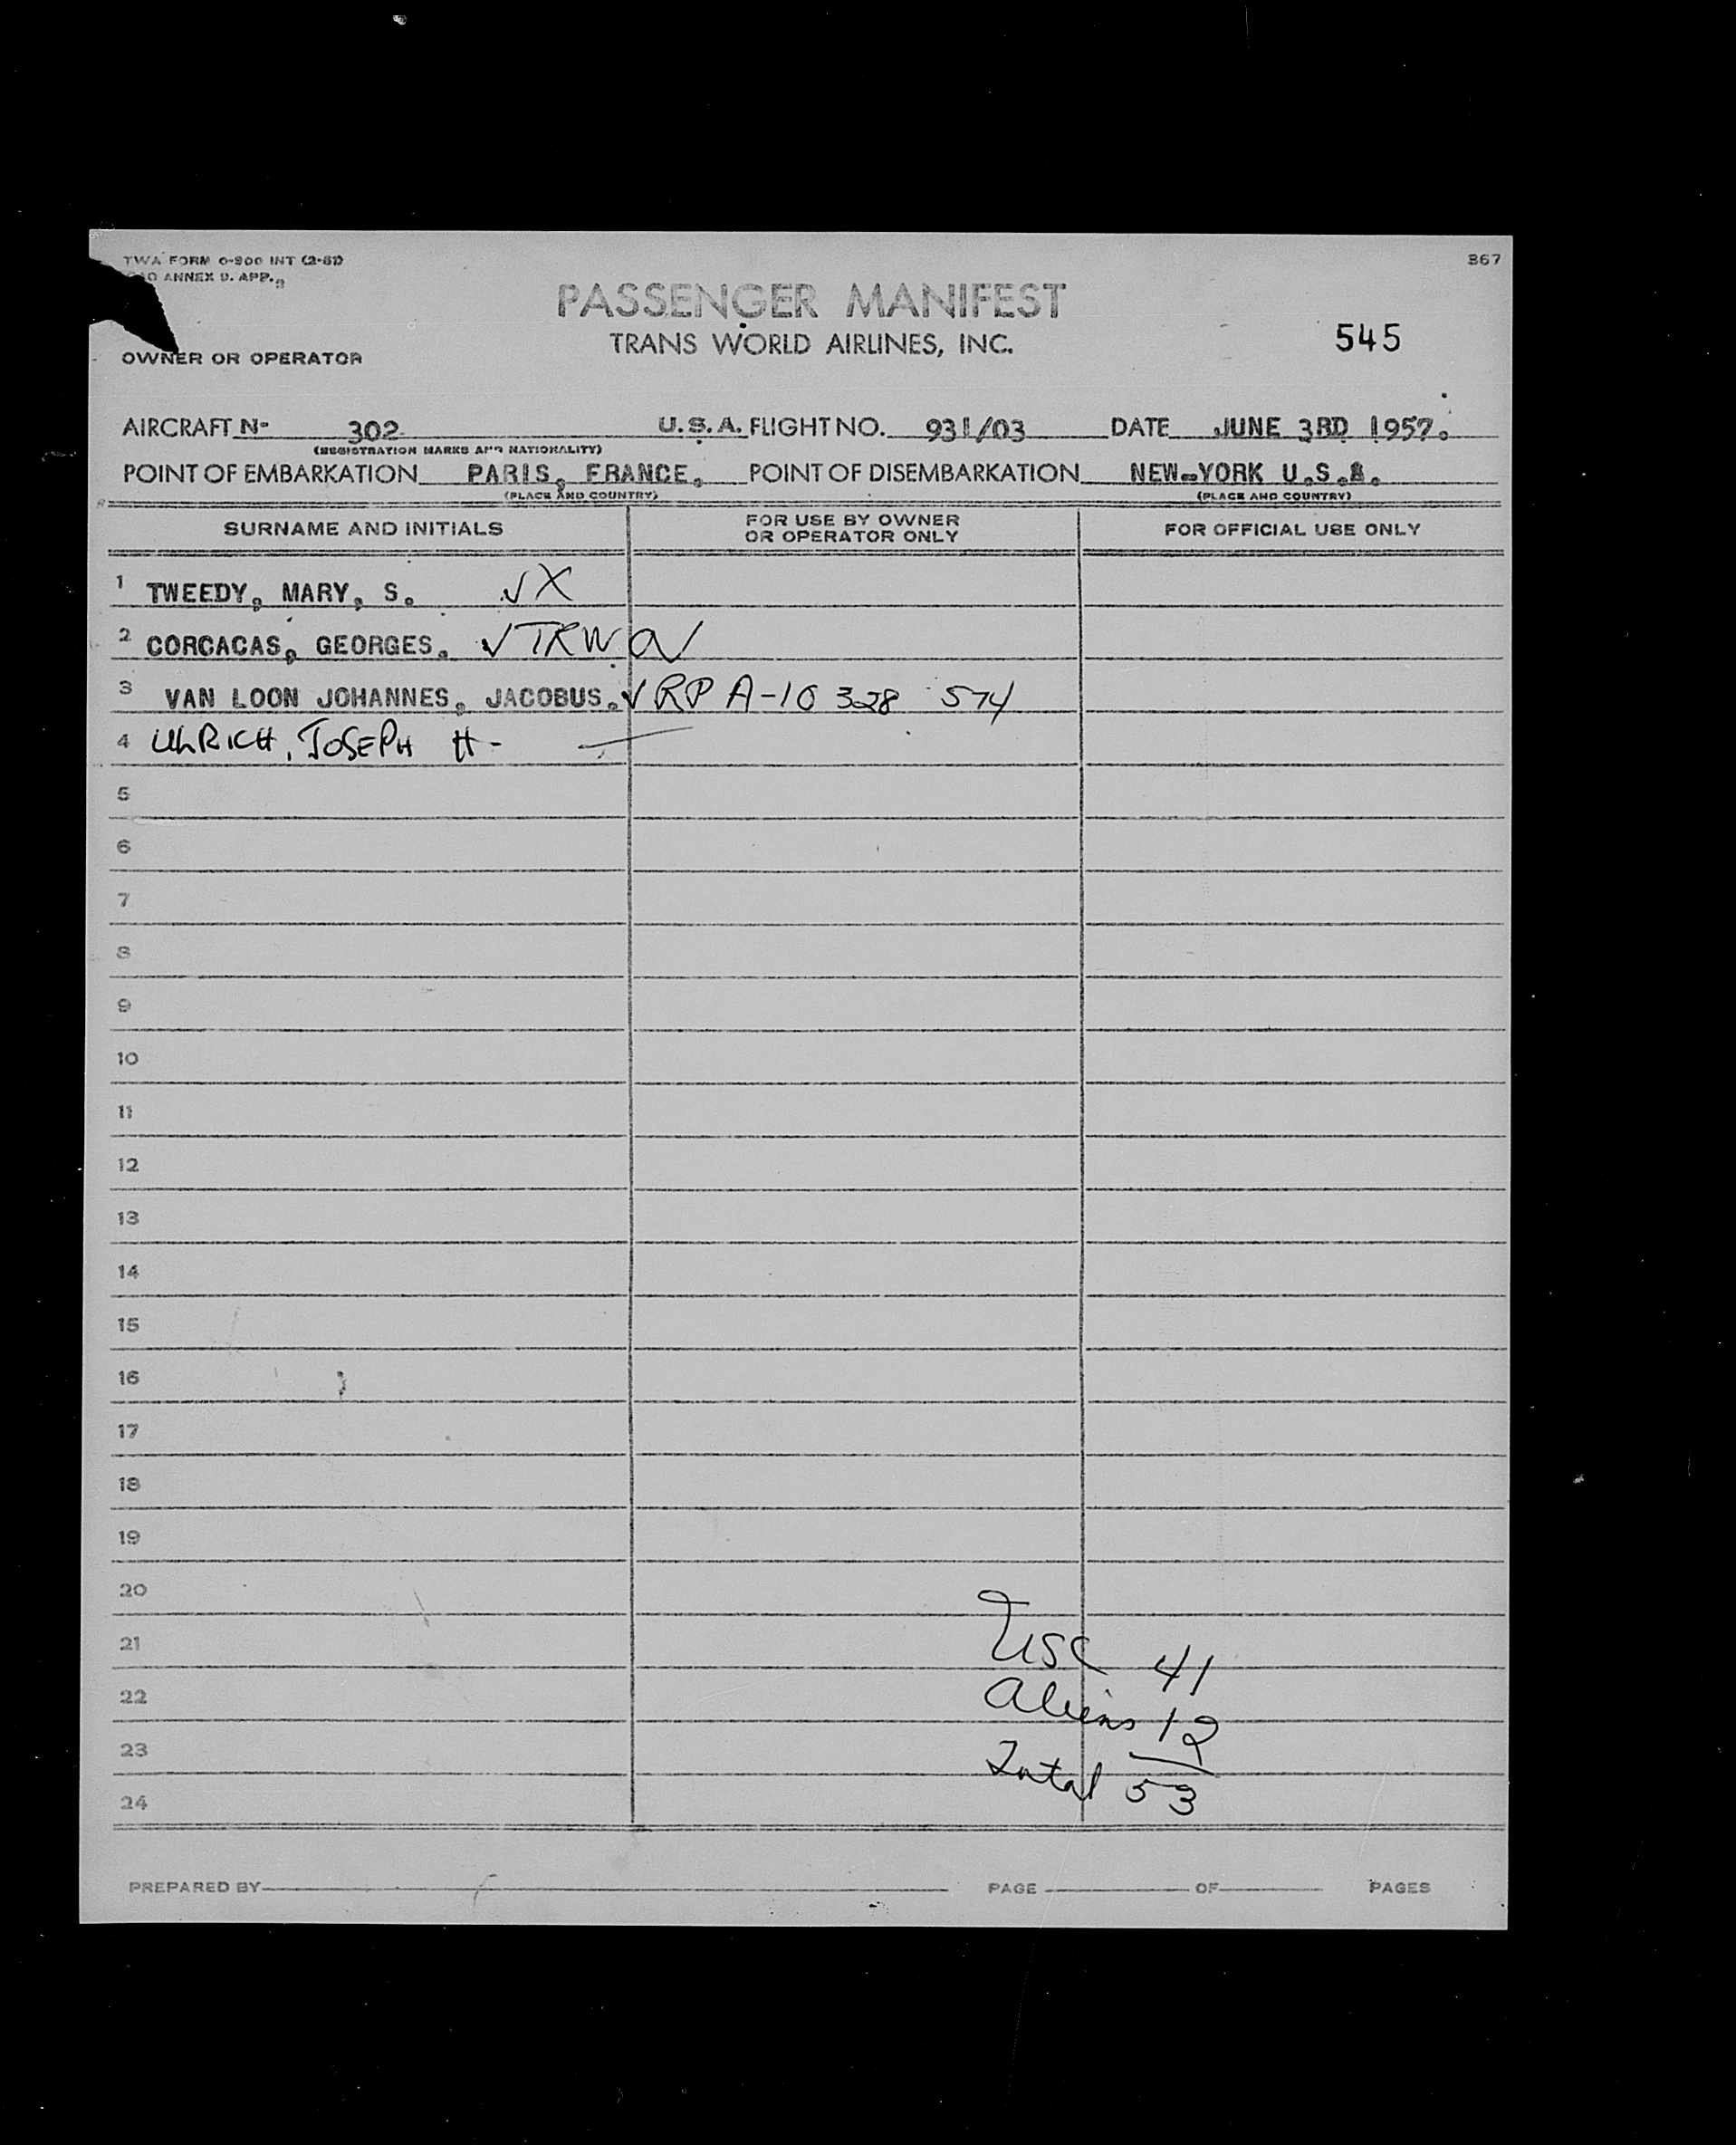 TWA FORM O-900 INT (2-51)
ANNEX 9. APP.
367
PASSENGER MANIFEST
TRANS WORLD AIRLINES, INC.
545
OWNER OR OPERATOR
AIRCRAFT N- 302 U.S.A. FLIGHT NO. 931/03 DATE JUNE 3RD 1957.
(REGISTRATION MARKS AND NATIONALITY)
POINT OF EMBARKATION PARIS, FRANCE. POINT OF DISEMBARKATION NEW-YORK U.S.A.
(PLACE AND COUNTRY) (PLACE AND COUNTRY)
SURNAME AND INITIALS
FOR USE BY OWNER
OR OPERATOR ONLY
FOR OFFICIAL USE ONLY
1 TWEEDY, MARY, S. √ X
2 CORCACAS, GEORGES. √ TRWOV
3 VAN LOON JOHANNES, JACOBUS. √ RP A-10 328 574
4 ULRICH, JOSEPH H-
5
6
7
8
9
10
11
12
13
14
15
16
17
18
19
20
21
22
23
24
USC 41
Aliens 12
Total 53
PREPARED BY PAGE OF PAGES